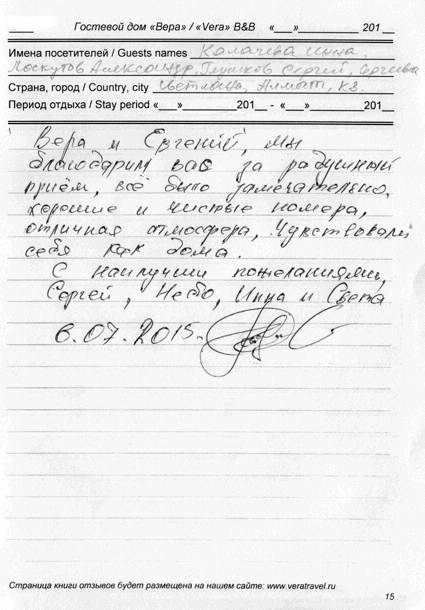 Гостевой дом «Вера» / «Vera» B&B «___»__________ 201__
Имена посетителей / Guests names Колачева Инна
Лоскутов Александр, Глушков Сергей, Сергеева
Страна, город / Country, city Светлана, Алматы, КЗ.
Период отдыха / Stay period «___»__________201__ - «___»__________201__
Вера и Евгений, мы
благодарим вас за радушный
приём, всё было замечательно,
хорошие и чистые номера,
отличная атмосфера, чувствовали
себя как дома.
С наилучши пожеланиями,
Сергей, Инна и Света
6.07.2015.
Страница книги отзывов будет размещена на нашем сайте: www.veratravel.ru
15